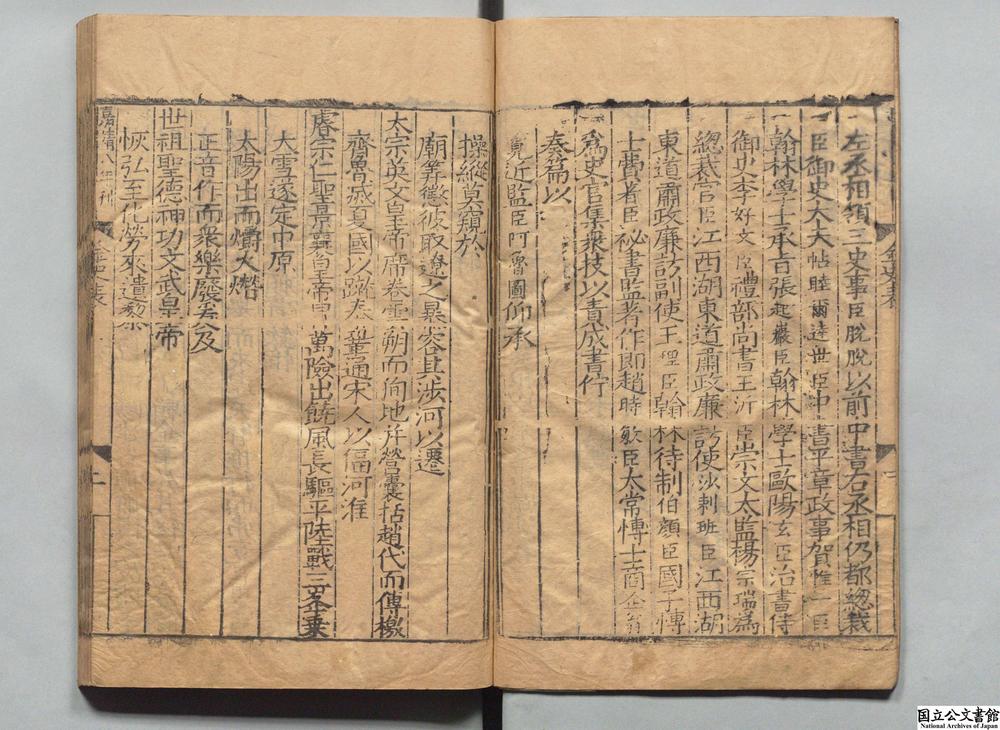 左丞相領三史事臣脫脫以前中書右丞相仍都總裁
臣御史大夫帖睦爾達世臣中書平章政事賀惟一臣
翰林學士承旨張起巖臣翰林學士歐陽玄臣治書侍
御史李好文臣禮部尚書王沂臣崇文太監楊宗瑞為
總裁官臣江西湖東道肅政廉訪使沙剌班臣江西湖
東道肅政廉訪副使王理臣翰林待制伯顏臣國子博
士費著臣祕書監著作郎趙時敏臣太常博士商企翁
為史官集衆技以責成書佇
奏篇以
覽近監臣阿魯圖仰承
操縱莫窺於
廟筭懲彼取遼之暴容其涉河以遷
太宗英文皇帝席卷雲朔而徇地并營囊括趙代而傳檄
齊魯滅夏國以蹴秦鞏通宋人以偪河淮
睿宗仁聖景襄皇帝冒萬險出饒風長驅平陸戰三峯乗
大雪遂定中原
太陽出而爝火熸
正音作而衆樂廢爰及
世祖聖德神功文武皇帝
恢弘至化勞來遺黎
嘉靖八年刊
金史表
二
国立公文書館
National Archives of Japan